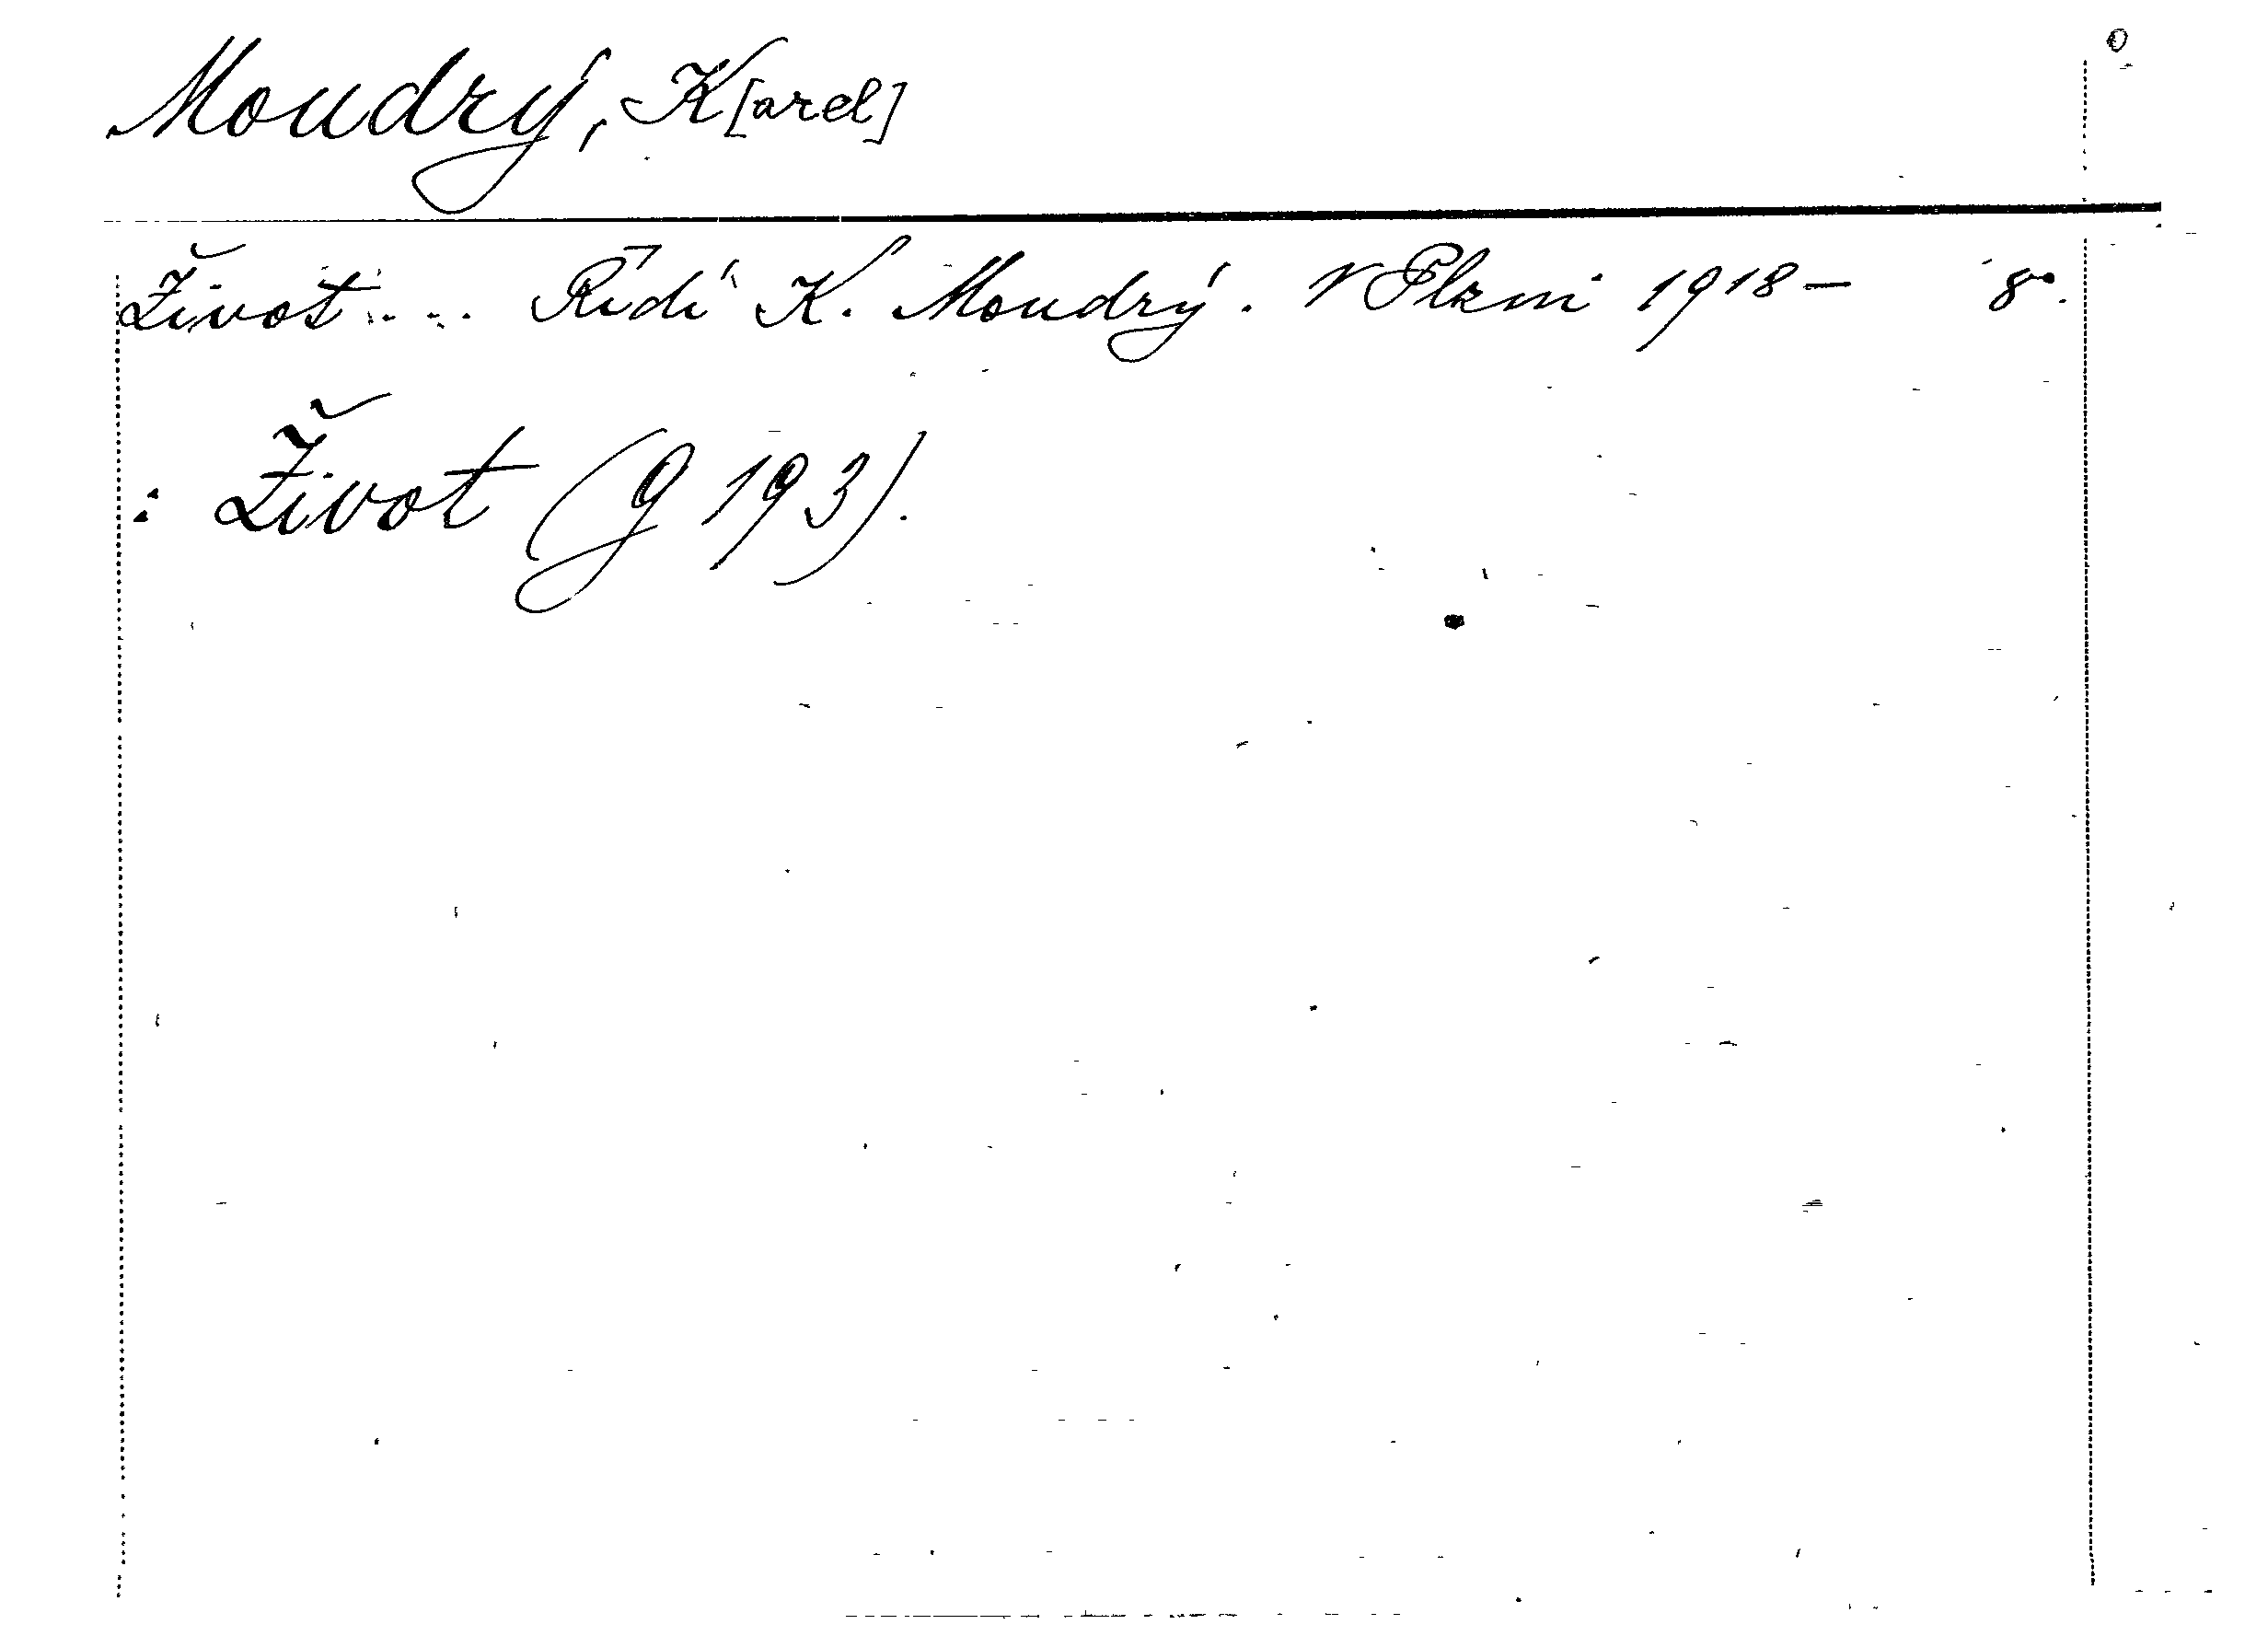 Moudrý, K[arel]
Život .... Řídí K. Moudrý. V Plzni 1918 – 8°.
: Život (g 193).